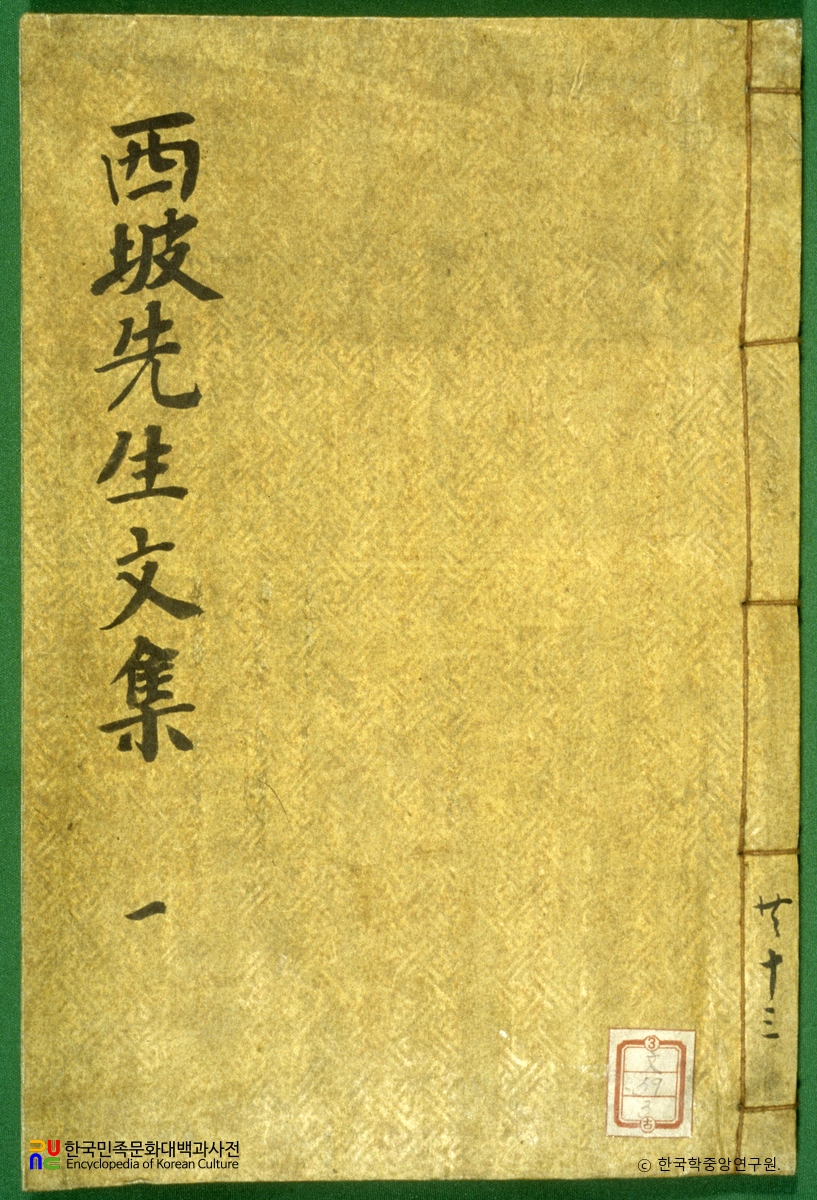 西坡先生文集
一
共十三
③
文
59
3
古
한국민족문화대백과사전
Encyclopedia of Korean Culture
© 한국학중앙연구원.